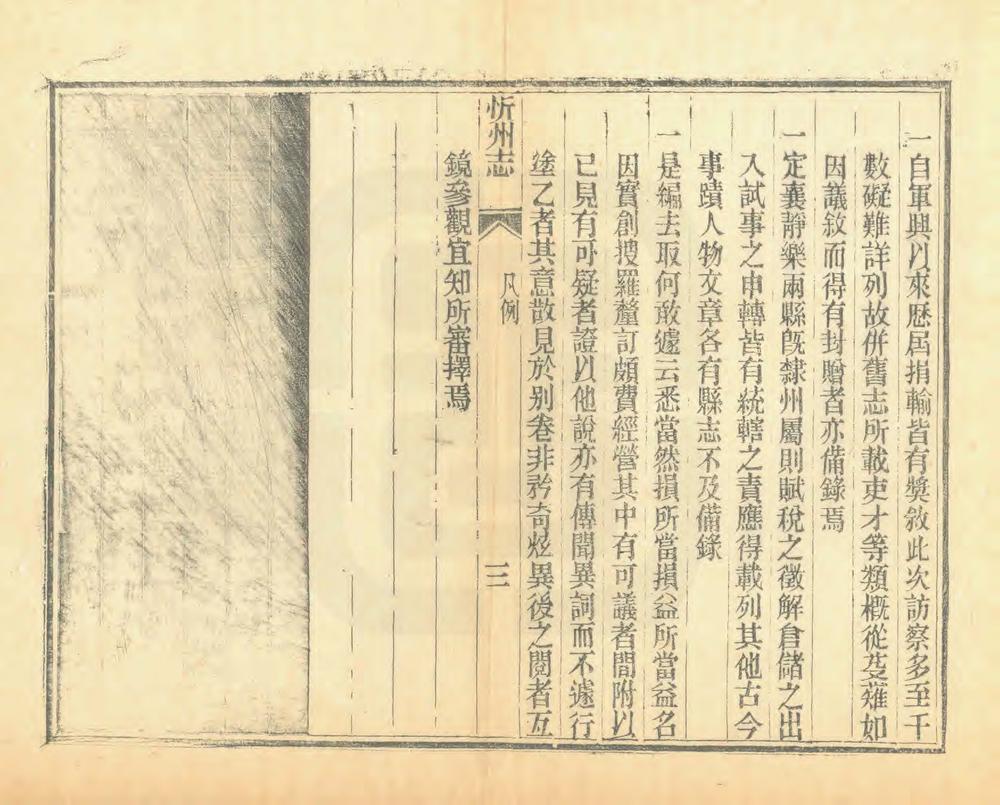 一自軍興以來歷屆捐輸皆有獎敘此次訪察多至千
數礙難詳列故併舊志所載吏才等類概從芟薙如
因議敘而得有封贈者亦備錄焉
一定襄靜樂兩縣既隸州屬則賦稅之徵解倉儲之出
入試事之申轉皆有統轄之責應得載列其他古今
事蹟人物文章各有縣志不及備錄
一是編去取何敢遽云悉當然損所當損益所當益名
因實創搜羅釐訂頗費經營其中有可議者間附以
已見有可疑者證以他說亦有傳聞異詞而不遽行
塗乙者其意散見於别卷非矜奇炫異後之閱者互
忻州志
凡例
三
鏡參觀宜知所審擇焉